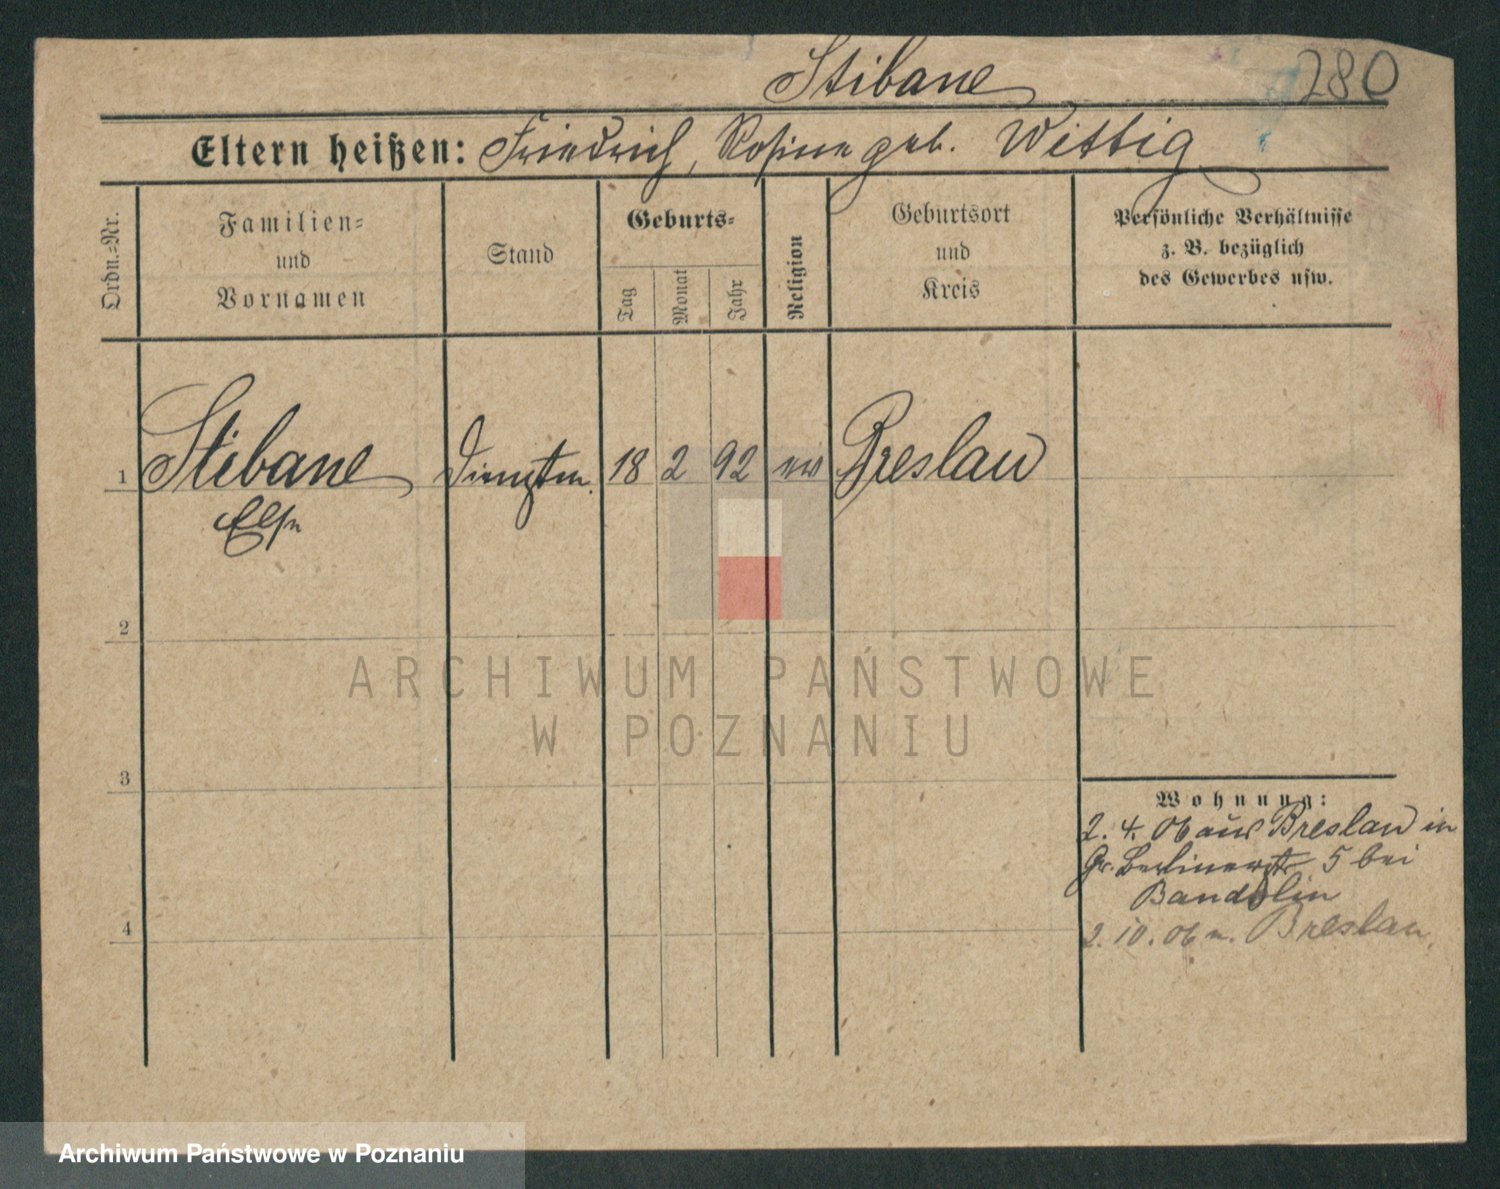 Stibane 280
Eltern heißen: Friedrich, Rosine geb. Wittig
Ordn.=Nr.
Familien=
und
Vornamen
Stand
Geburts=
Tag
Monat
Jahr
Religion
Geburtsort
und
Kreis
Persönliche Verhältnisse
z. B. bezüglich
des Gewerbes usw.
1 Stibane Dienstm. 18 2 92 ev Breslau
Else
2
ARCHIWUM PAŃSTWOWE
W POZNANIU
3
Wohnung:
2. 4. 06 aus Breslau in
Gr. Berlinerstr 5 bei
Bandolin
4
2. 10. 06 n. Breslau.
Archiwum Państwowe w Poznaniu